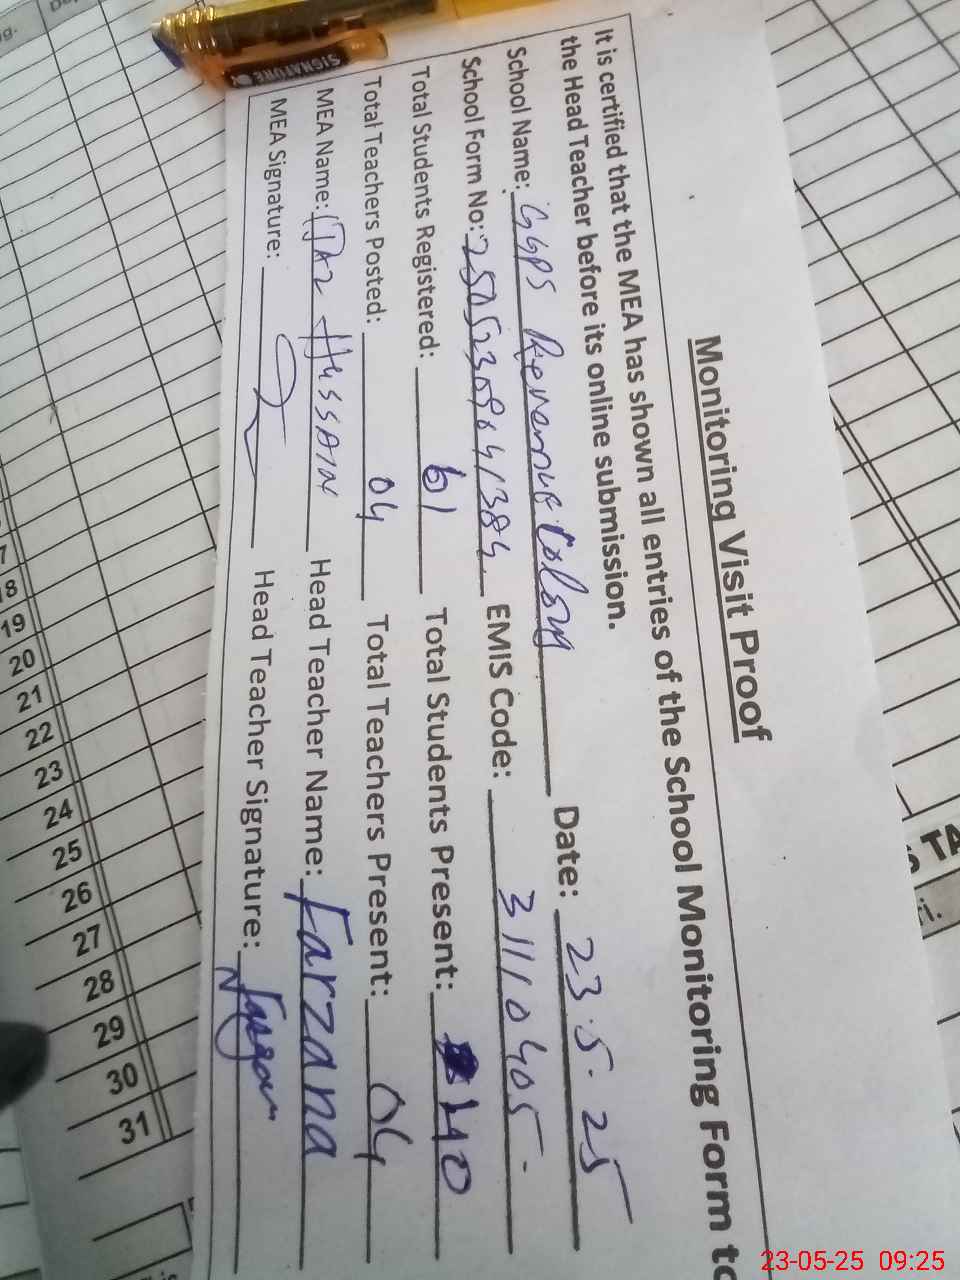 Monitoring Visit Proof
It is certified that the MEA has shown all entries of the School Monitoring Form to
the Head Teacher before its online submission.
School Name: GGPS Revenue Colony Date: 23.5.25
School Form No: EMIS Code: 31110405
Total Students Registered: 61 Total Students Present: 40
Total Teachers Posted: 04 Total Teachers Present: 04
MEA Name: IJAZ HUSSAIN Head Teacher Name: Farzana
MEA Signature: Head Teacher Signature:
SIGNATURE
18
19
20
21
22
23
24
25
26
27
28
29
30
31
23-05-25 09:25